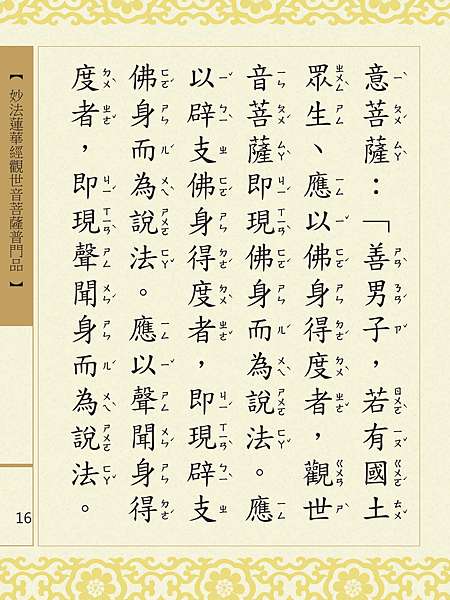 意菩薩：「善男子，若有國土
眾生、應以佛身得度者，觀世
音菩薩，即現佛身而為說法。應
以辟支佛身得度者，即現辟支
佛身而為說法。應以聲聞身得
度者，即現聲聞身而為說法。
【妙法蓮華經觀世音菩薩普門品】
16